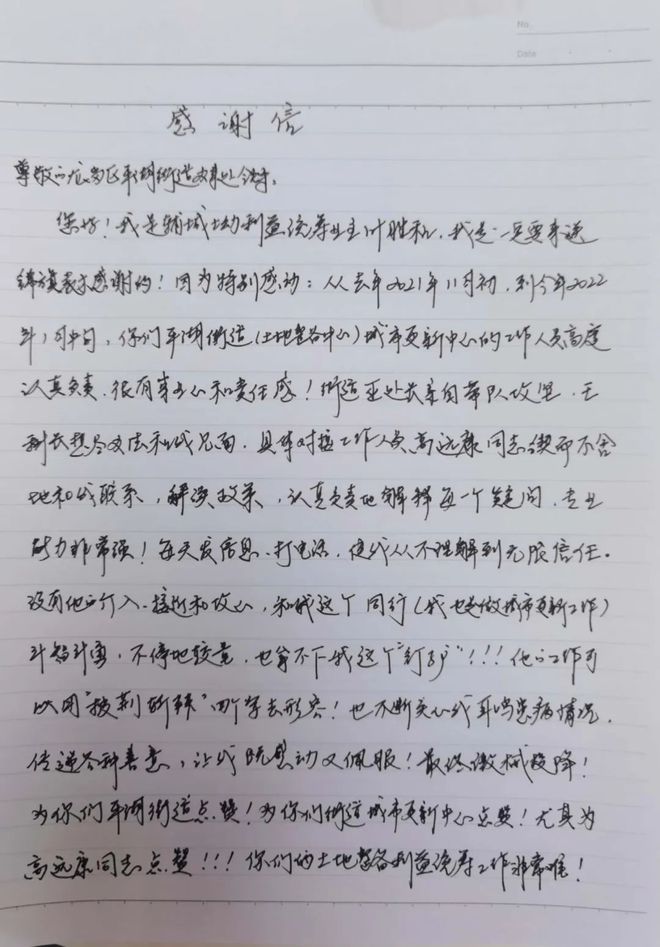 No.
Date
感谢信
尊敬的龙岗区平湖街道办事处领导:
您好!我是辅城坳利益统筹业主叶胜和,我是一定要来送
锦旗表示感谢的!因为特别感动:从去年2021年11月初,到今年2022
年1月中旬,你们平湖街道(土地整备中心)城市更新中心的工作人员高度
认真负责、很有事业心和责任感!街道亚处长亲自带队攻坚,王
科长想尽办法和我见面,具体对接工作人员高远康同志锲而不舍
地和我联系,解读政策,认真负责地解释每一个疑问,专业
能力非常强!每天发信息、打电话,使我从不理解到无限信任。
没有他的介入、接近和攻心,和我这个同行(我也是做城市更新工作)
斗智斗勇,不停地较量,也拿不下我这个"钉子"!!!他的工作可
以用"披荆斩棘"四个字去形容!也不断关心我耳鸣患病情况,
传递各种善意,让我既感动又佩服!最终缴械投降!
为你们平湖街道点赞!为你们街道城市更新中心点赞!尤其为
高远康同志点赞!!!你们的土地整备利益统筹工作非常难!